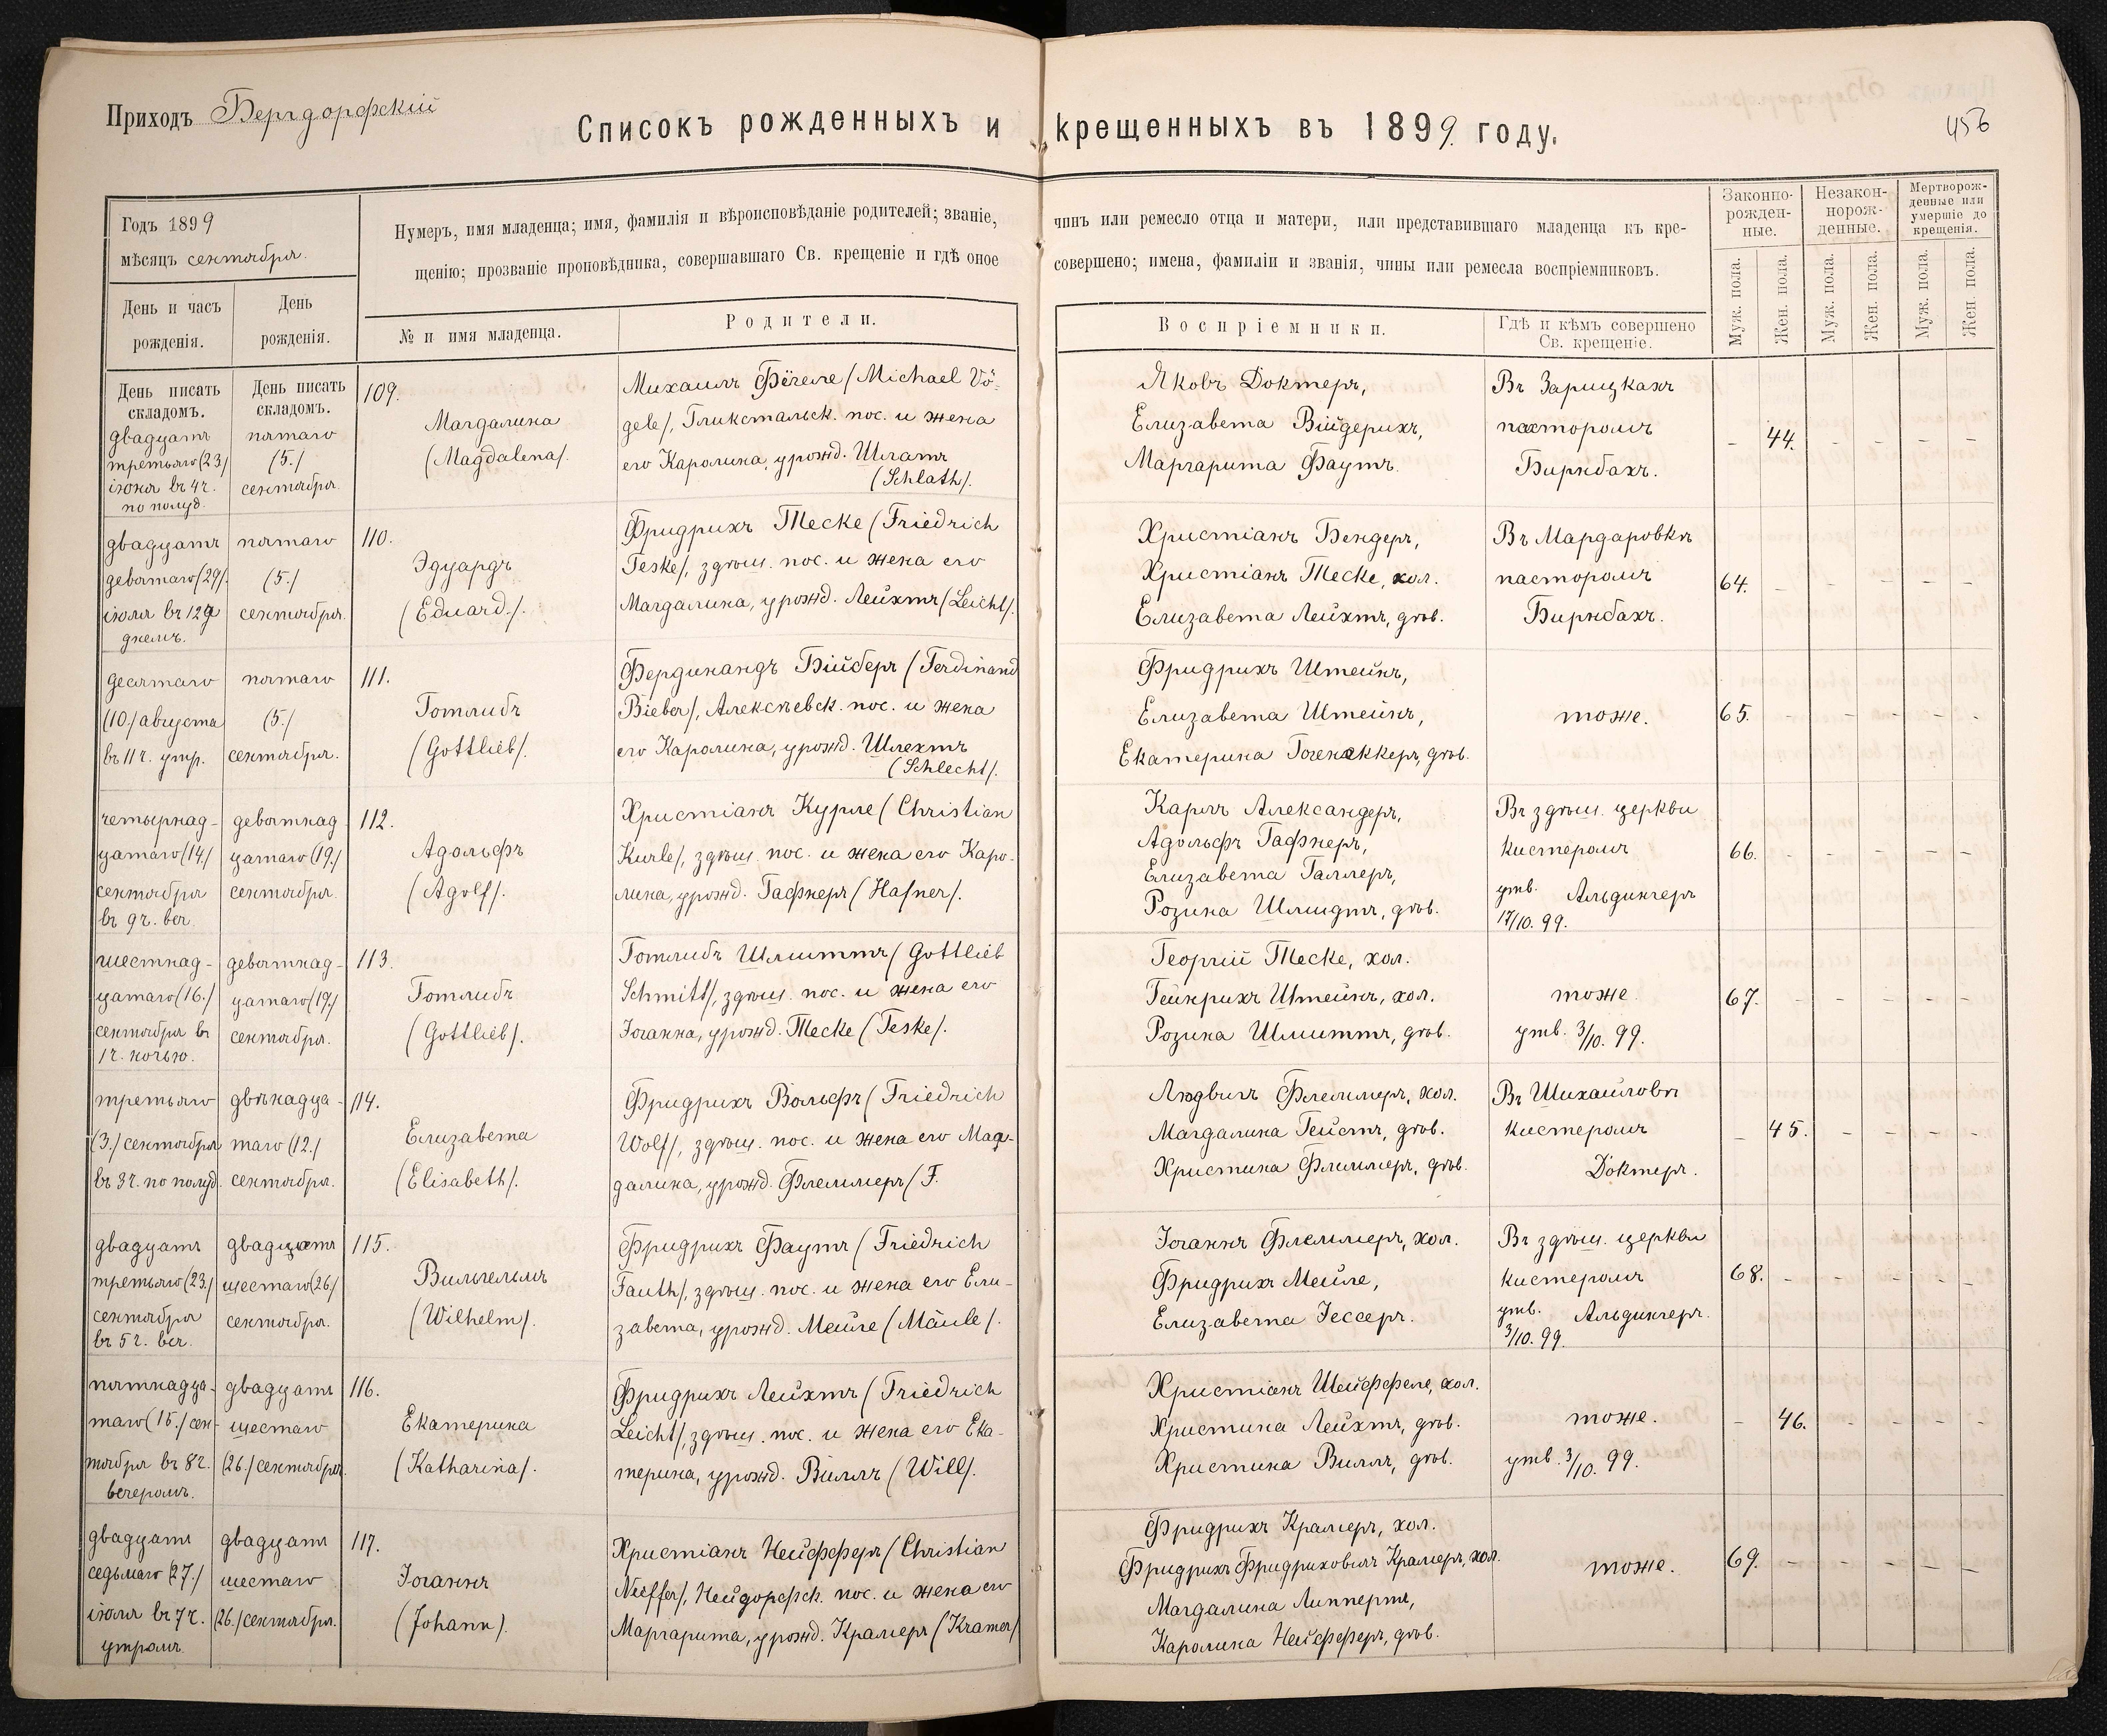 Приходъ Бергдорфскій
Списокъ рожденныхъ и крещенныхъ въ 1899 году.
456
Годъ 1899
мѣсяцъ сентября.
День и часъ
рожденія.
День
рожденія.
Нумеръ, имя младенца; имя, фамилія и вѣроисповѣданіе родителей; званіе,
щенію; прозваніе проповѣдника, совершавшаго Св. крещеніе и гдѣ оное
№ и имя младенца.
Родители.
чинъ или ремесло отца и матери, или представившаго младенца къ кре-
совершено; имена, фамиліи и званія, чины или ремесла воспріемниковъ.
Воспріемники.
Гдѣ и кѣмъ совершено
Св. крещеніе.
Законно-
рожден-
ные.
Незакон-
норож-
денные.
Мертворож-
денные или
умершіе до
крещенія.
Муж. пола.
Жен. пола.
Муж. пола.
Жен. пола.
Муж. пола.
Жен. пола.
День писать
складомъ.
День писать
складомъ.
двадцать
третьяго (23/
іюня въ 4 ч.
по полуд.
пятаго
(5./
сентября.
109.
Магдалина
(Magdalena/.
Михаилъ Фёгеле (Michael Vö-
gele/, Гликстальск. пос. и жена
его Каролина, урожд. Шлатъ
(Schlath/.
Яковъ Доктеръ,
Елизавета Війдерихъ,
Маргарита Фаутъ.
Въ Зарицкахъ
пасторомъ
Бирнбахъ.
- 44. - - - -
двадцать
девятаго (29/.
іюля въ 12 ч
днемъ.
пятаго
(5./
сентября.
110.
Эдуардъ
(Eduard./.
Фридрихъ Теске (Friedrich
Teske/, здѣш. пос. и жена его
Магдалина, урожд. Лейхтъ (Leicht/.
Христіанъ Бендеръ,
Христіанъ Теске, хол.
Елизавета Лейхтъ, дѣв.
Въ Мардаровкѣ
пасторомъ
Бирнбахъ.
64. - - - - -
десятаго
(10./ августа
въ 11 ч. утр.
пятаго
(5./
сентября.
111.
Готлибъ
(Gottlieb/.
Фердинандъ Бійберъ (Ferdinand
Bieber/, Алексѣевск. пос. и жена
его Каролина, урожд. Шлехтъ
(Schlecht/.
Фридрихъ Штейнъ,
Елизавета Штейнъ,
Екатерина Гогенаккеръ, дѣв.
тоже.
65. - - - - -
четырнад-
цатаго (14./
сентября
въ 9 ч. веч.
девятнад
цатаго (19./
сентября.
112.
Адольфъ
(Agolf/.
Христіанъ Курле (Christian
Kurle/, здѣш. пос. и жена его Каро-
лина, урожд. Гафнеръ (Hafner/.
Карлъ Александеръ,
Адольфъ Гафнеръ,
Елизавета Галлеръ,
Розина Шмидтъ, дѣв.
Въ здѣш. церкви
кистеромъ
утв. Альдингеръ
17/10. 99.
66. - - - - -
шестнад-
цатаго (16./
сентября въ
1 ч. ночью.
девятнад-
цатаго (19./
сентября.
113.
Готлибъ
(Gottlieb/.
Готлибъ Шмиттъ (Gottlieb
Schmitt/, здѣш. пос. и жена его
Іоганна, урожд. Теске (Teske/.
Георгій Теске, хол.
Гейнрихъ Штейнъ, хол.
Розина Шмиттъ, дѣв.
тоже.
утв. 3/10. 99.
67. - - - - -
третьяго
(3./ сентября
въ 3 ч. по полуд.
двѣнадца-
таго (12./
сентября.
114.
Елизавета
(Elisabeth/.
Фридрихъ Вольфъ (Friedrich
Wolf/, здѣш. пос. и жена его Маг-
далина, урожд. Флеммеръ (F.
Людвигъ Флеммеръ, хол.
Магдалина Гейстъ, дѣв.
Христина Флеммеръ, дѣв.
Въ Михайловѣ
кистеромъ
Доктеръ.
- 45. - - - -
двадцать
третьяго (23./
сентября
въ 5 ч. веч.
двадцать
шестаго (26/
сентября.
115.
Вильгельмъ
(Wilhelm/.
Фридрихъ Фаутъ (Friedrich
Fauth/, здѣш. пос. и жена его Ели-
завета, урожд. Мейле (Mäule/.
Іоганнъ Флеммеръ, хол.
Фридрихъ Мейле,
Елизавета Іессеръ.
Въ здѣш. церкви
кистеромъ
утв. Альдингеръ.
3/10. 99.
68. - - - - -
пятнадца-
таго (15./ сен-
тября въ 8 ч.
вечеромъ.
двадцать
шестаго
(26./ сентября.
116.
Екатерина
(Katharina/.
Фридрихъ Лейхтъ (Friedrich
Leicht/, здѣш. пос. и жена его Ека-
терина, урожд. Вилль (Will/.
Христіанъ Шейффеле, хол.
Христина Лейхтъ, дѣв.
Христина Вилль, дѣв.
тоже.
утв. 3/10. 99.
- 46. - - - -
двадцать
седьмаго (27./
іюля въ 7 ч.
утромъ.
двадцать
шестаго
(26./ сентября.
117.
Іоганнъ
(Johann/.
Христіанъ Нейфферъ (Christian
Neiffer/, Нейдорфск. пос. и жена его
Маргарита, урожд. Крамеръ (Kramer/
Фридрихъ Крамеръ, хол.
Фридрихъ Фридриховичъ Крамеръ, хол.
Магдалина Липпертъ,
Каролина Нейфферъ, дѣв.
тоже.
69. - - - - -